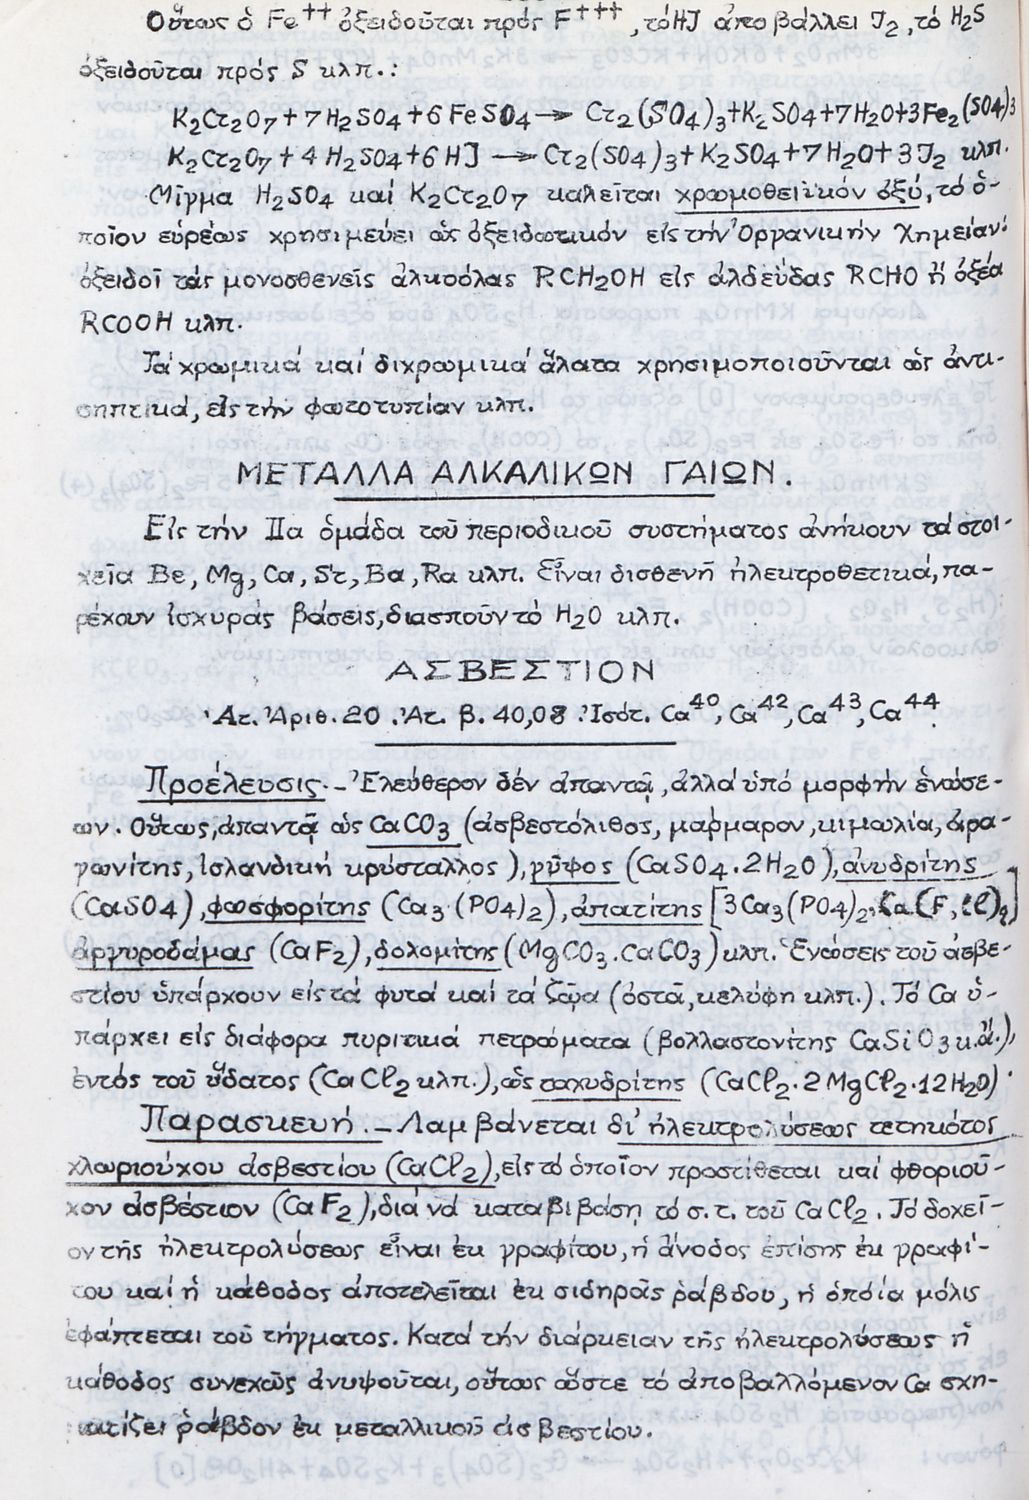 Οὕτως ὁ Fe⁺⁺ ὀξειδοῦται πρός F⁺⁺⁺, τό HJ ἀποβάλλει J₂, τό H₂S
ὀξειδοῦται πρός S κλπ.:
K₂Cr₂O₇+7H₂SO₄+6FeSO₄→Cr₂(SO₄)₃+K₂SO₄+7H₂O+3Fe₂(SO₄)₃
K₂Cr₂O₇+4H₂SO₄+6HJ→Cr₂(SO₄)₃+K₂SO₄+7H₂O+3J₂ κλπ.
Μῖγμα H₂SO₄ καί K₂Cr₂O7 καλεῖται χρωμοθειϊκόν ὀξύ, τό ὁ-
ποῖον εὐρέως χρησιμεύει ὡς ὀξειδωτικόν εἰς τήν Ὀργανικήν Χημείαν·
ὀξειδοῖ τάς μονοσθενεῖς ἀλκοόλας RCH₂OH εἰς ἀλδεύδας RCHO ἤ ὀξέα
RCOOH κλπ.
Τά χρωμικά καί διχρωμικά ἅλατα χρησιμοποιοῦνται ὡς ἀντι-
σηπτικά, εἰς τήν φωτοτυπίαν κλπ.
ΜΕΤΑΛΛΑ ΑΛΚΑΛΙΚΩΝ ΓΑΙΩΝ.
Εἰς τήν IIa ὁμάδα τοῦ περιοδικοῦ συστήματος ἀνήκουν τά στοι-
χεῖα Be, Mg, Ca, Sr, Ba, Ra κλπ. Εἶναι δισθενῆ ἠλεκτροθετικά, πα-
ρέχουν ἰσχυράς βάσεις, διασποῦν τό H₂O κλπ.
ΑΣΒΕΣΤΙΟΝ
Ἀτ. Ἀριθ. 20. Ἀτ. β. 40,08. Ἰσότ. Ca⁴⁰, Ca⁴², Ca⁴³, Ca⁴⁴.
Προέλευσις.- Ἐλεύθερον δέν ἀπαντᾷ, ἀλλά ὑπό μορφήν ἑνώσε-
ων. Οὕτως, ἀπαντᾷ ὡς CaCO₃ (ἀσβεστόλιθος, μάρμαρον, κιμωλία, ἀρα-
γωνίτης, ἰσλανδική κρύσταλλος), γῦψος (CaSO₄.2H₂O), ἀνυδρίτης
(CaSO₄), φωσφορίτης (Ca₃.(PO₄)₂), ἀπατίτης [3Ca₃(PO₄)₂.Ca(F,Cl)₂]
ἀργυροδάμας (CaF₂), δολομίτης (MgCO₃.CaCO₃) κλπ. Ἑνώσεις τοῦ ἀσβε-
στίου ὑπάρχουν εἰς τά φυτά καί τά ζῷα (ὀστᾶ, κελύφη κλπ.). Τό Ca ὑ-
πάρχει εἰς διάφορα πυριτικά πετρώματα (βολλαστονίτης CaSiO₃ κ.ἄ.),
ἐντός τοῦ ὕδατος (CaCl₂ κλπ.), ὡς ταχυδρίτης (CaCl₂.2MgCl₂.12H₂O).
Παρασκευή.- Λαμβάνεται δι' ἠλεκτρολύσεως τετηκότος
χλωριούχου ἀσβεστίου (CaCl₂), εἰς τό ὁποῖον προστίθεται καί φθοριοῦ-
χον ἀσβέστιον (CaF₂), διά νά καταβιβάσῃ τό σ.τ. τοῦ CaCl₂. Τό δοχεῖ-
ον τῆς ἠλεκτρολύσεως εἶναι ἐκ γραφίτου, ἡ ἄνοδος ἐπίσης ἐκ γραφί-
του καί ἡ κάθοδος ἀποτελεῖται ἐκ σιδηρᾶς ράβδου, ἡ ὁποία μόλις
ἐφάπτεται τοῦ τήγματος. Κατά τήν διάρκειαν τῆς ἠλεκτρολύσεως ἡ
κάθοδος συνεχῶς ἀνυψοῦται, οὕτως ὥστε τό ἀποβαλλόμενον Ca σχη-
ματίζει ράβδον ἐκ μεταλλικοῦ ἀσβεστίου.